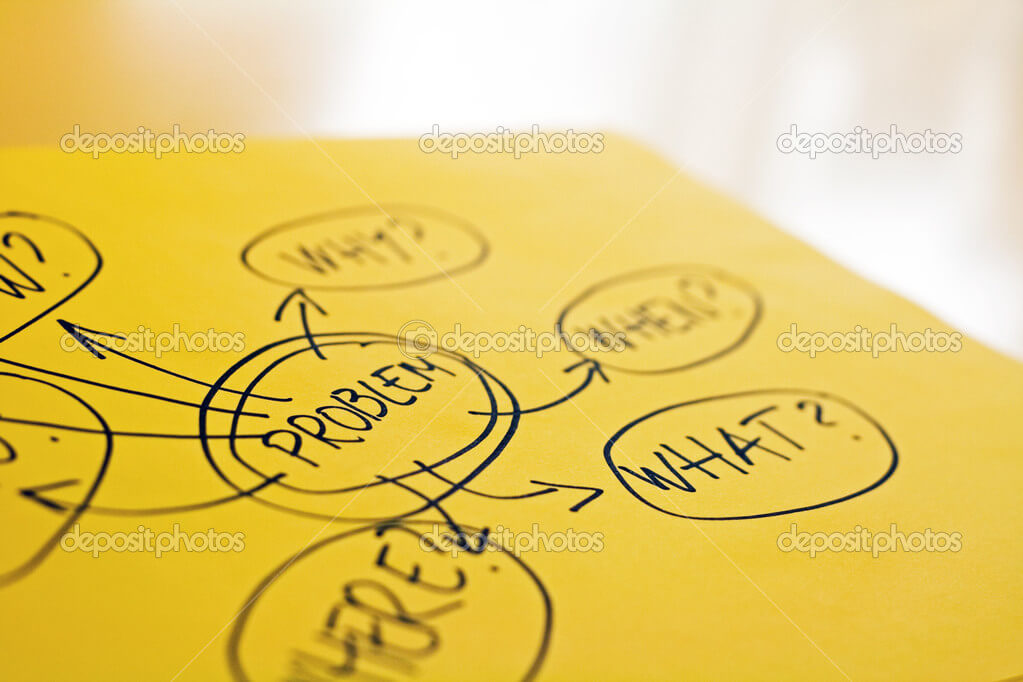 depositphotos depositphotos depositphotos
WHY?
W?
WHEN?
depositphotos © depositphotos depositphotos
PROBLEM
WHAT?
depositphotos depositphotos depositphotos
WHERE?